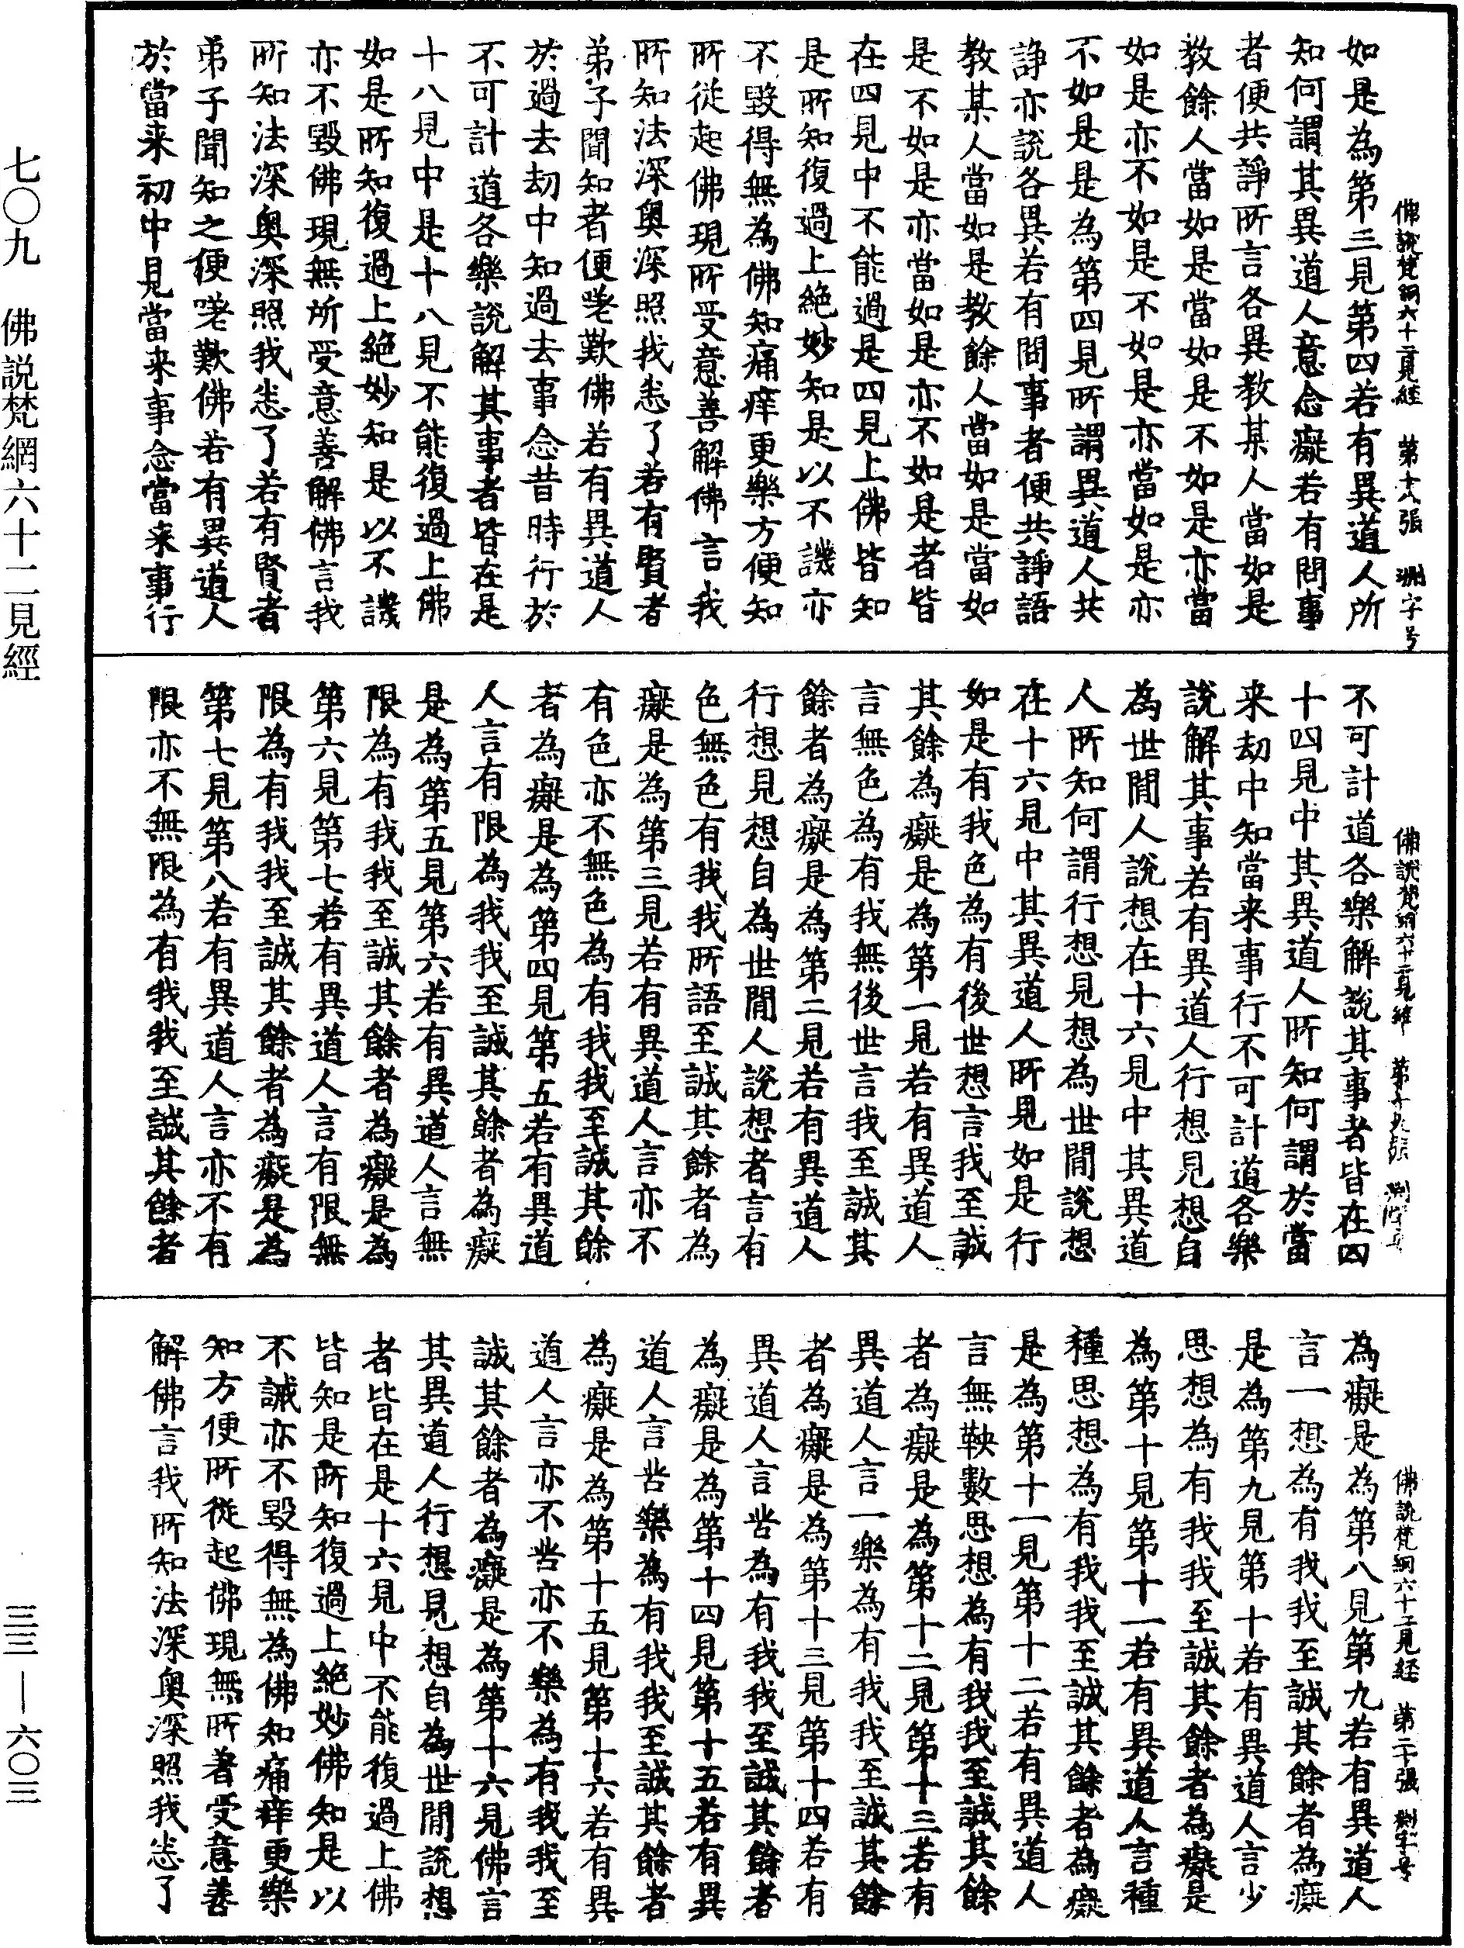 佛說梵網六十二見經　第十八張　淵字号
如是為第三見第四若有異道人所
知何謂其異道人意念癡若有問事
者便共諍所言各異教某人當如是
教餘人當如是當如是不如是亦當
如是亦不如是不如是亦當如是亦
不如是是為第四見所謂異道人共
諍亦說各異若有問事者便共諍語
教某人當如是教餘人當如是當如
是不如是亦當如是亦不如是者皆
在四見中不能過是四見上佛皆知
是所知復過上絕妙知是以不譏亦
不毀得無為佛知痛痒更樂方便知
所從起佛現所受意善解佛言我
所知法深奧深照我悉了若有賢者
弟子聞知者便嗟歎佛若有異道人
於過去劫中知過去事念昔時行於
不可計道各樂說解其事者皆在是
十八見中是十八見不能復過上佛
如是所知復過上絕妙知是以不譏
亦不毀佛現無所受意善解佛言我
所知法深奧深照我悉了若有賢者
弟子聞知之便嗟歎佛若有異道人
於當来初中見當来事念當来事行
佛說梵網六十二見經　第十九張　淵字号
不可計道各樂解說其事者皆在四
十四見中其異道人所知何謂於當
来劫中知當来事行不可計道各樂
說解其事若有異道人行想見想自
為世間人說想在十六見中其異道
人所知何謂行想見想為世間說想
在十六見中其異道人所見如是行
如是有我色為有後世想言我至誠
其餘為癡是為第一見若有異道人
言無色為有我無後世言我至誠其
餘者為癡是為第二見若有異道人
行想見想自為世間人說想者言有
色無色有我我所語至誠其餘者為
癡是為第三見若有異道人言亦不
有色亦不無色為有我我至誠其餘
者為癡是為第四見第五若有異道
人言有限為我我至誠其餘者為癡
是為第五見第六若有異道人言無
限為有我我至誠其餘者為癡是為
第六見第七若有異道人言有限無
限為有我我至誠其餘者為癡是為
第七見第八若有異道人言亦不有
限亦不無限為有我我至誠其餘者
佛說梵網六十二見經　第二十張　淵字号
為癡是為第八見第九若有異道人
言一想為有我我至誠其餘者為癡
是為第九見第十若有異道人言少
思想為有我我至誠其餘者為癡是
為第十見第十一若有異道人言種
種思想為有我我至誠其餘者為癡
是為第十一見第十二若有異道人
言無鞅數思想為有我我至誠其餘
者為癡是為第十二見第十三若有
異道人言一樂為有我我至誠其餘
者為癡是為第十三見第十四若有
異道人言苦為有我我至誠其餘者
為癡是為第十四見第十五若有異
道人言苦樂為有我我至誠其餘者
為癡是為第十五見第十六若有異
道人言亦不苦亦不樂為有我我至
誠其餘者為癡是為第十六見佛言
其異道人行想見想自為世間說想
者皆在是十六見中不能復過上佛
皆知是所知復過上絕妙佛知是以
不誡亦不毀得無為佛知痛痒更樂
知方便所從起佛現無所著受意善
解佛言我所知法深奧深照我悉了
七〇九　佛説梵網六十二見經
三三—六〇三